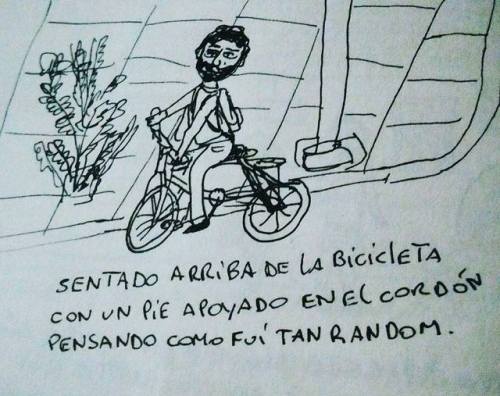 SENTADO ARRIBA DE LA BICICLETA
CON UN PIE APOYADO EN EL CORDÓN
PENSANDO COMO FUÍ TAN RANDOM.